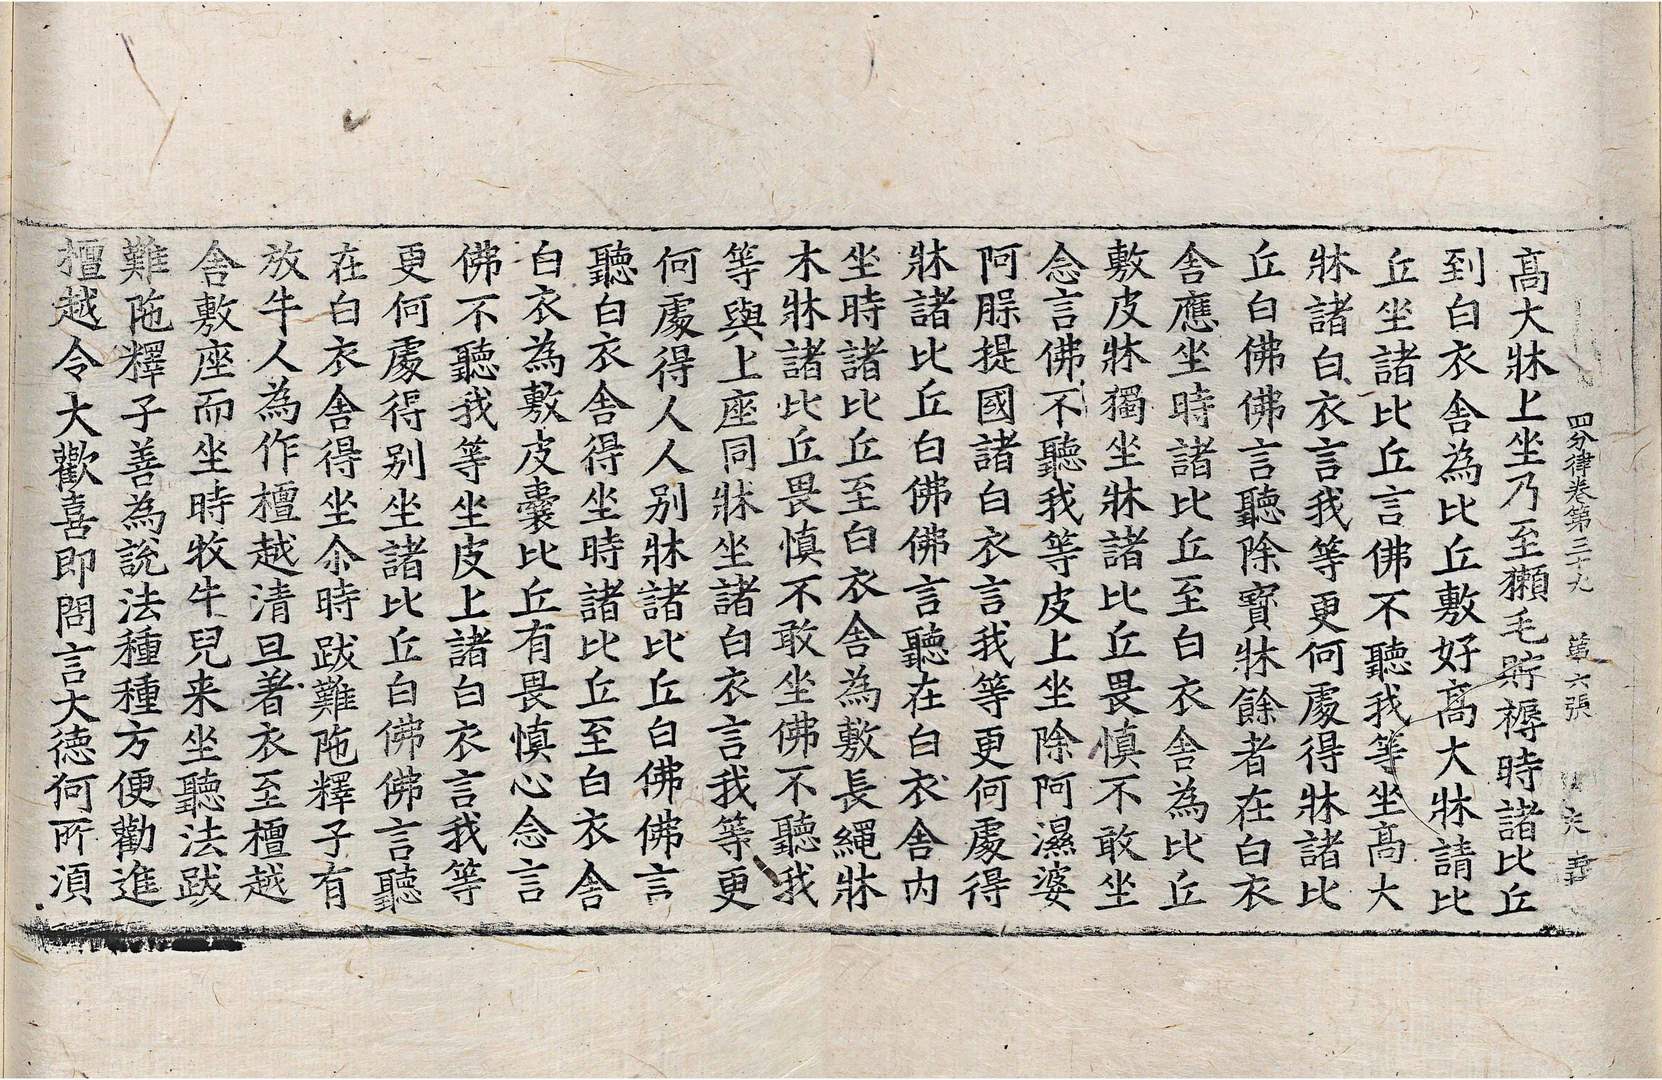 四分律卷第三十九 第六張
高大牀上坐乃至獺毛貯褥時諸比丘
到白衣舍為比丘敷好高大牀請比
丘坐諸比丘言佛不聽我等坐高大
牀諸白衣言我等更何處得牀諸比
丘白佛佛言聽除寶牀餘者在白衣
舍應坐時諸比丘至白衣舍為比丘
敷皮牀獨坐牀諸比丘畏慎不敢坐
念言佛不聽我等皮上坐除阿濕婆
阿䐗提國諸白衣言我等更何處得
牀諸比丘白佛佛言聽在白衣舍內
坐時諸比丘至白衣舍為敷長繩牀
木牀諸比丘畏慎不敢坐佛不聽我
等與上座同牀坐諸白衣言我等更
何處得人人別牀諸比丘白佛佛言
聽白衣舍得坐時諸比丘至白衣舍
白衣為敷皮囊比丘有畏慎心念言
佛不聽我等坐皮上諸白衣言我等
更何處得別坐諸比丘白佛佛言聽
在白衣舍得坐尒時跋難陁釋子有
放牛人為作檀越清旦著衣至檀越
舍敷座而坐時牧牛兒来坐聽法跋
難陁釋子善為說法種種方便勸進
檀越令大歡喜即問言大德何所湏